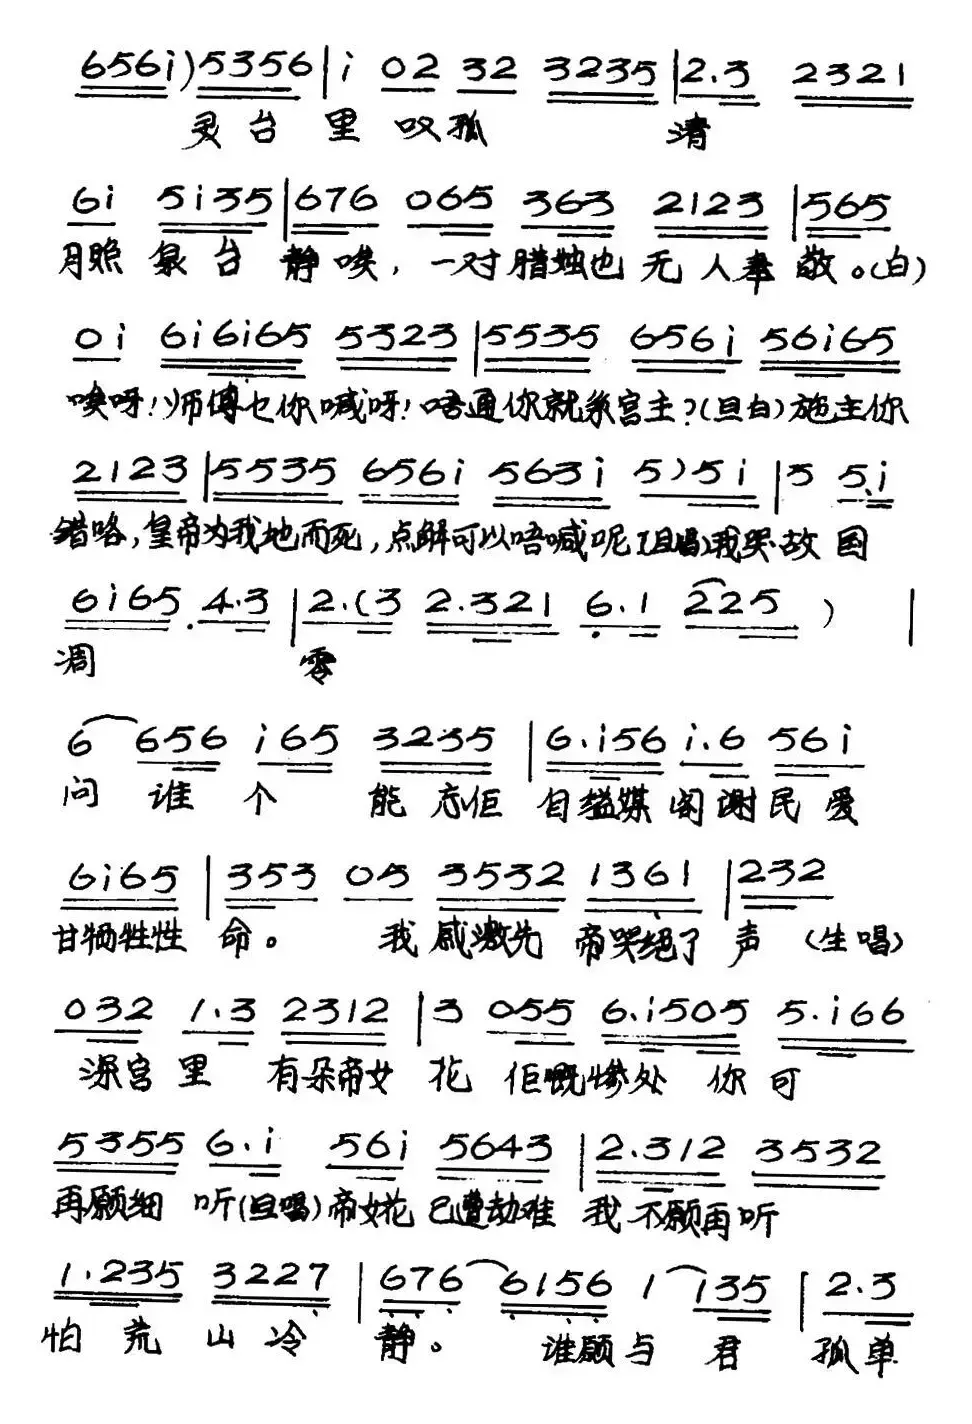 656i) 5356 | i 02 32 3235 | 2.3 2321
灵台里叹孤 清
6i 5i35 | 676 065 363 2123 | 565
月照泉台静唉，一对腊烛也无人奉敬。(白)
0i 6i6i65 5323 | 5535 656i 56i65
唉呀!师傅乜你喊呀!唔通你就系宫主?(旦白)施主你
2123 | 5535 656i 563i 5) 5i | 3 5.i
错咯，皇帝为我地而死，点解可以唔喊呢(旦唱)我哭故国
6i65 4.3 | 2.(3 2.321 6.1 225 ) |
凋 零
6 656 i65 3235 | 6.i56 i.6 56i
问谁个能忘佢自缢媒阁谢民爱
6i65 | 353 05 3532 1361 | 232
甘牺牲性命。 我感激先帝哭绝了声 (生唱)
032 1.3 2312 | 3 055 6.i505 5.i66
深宫里 有朵帝女花佢嘅惨处 你可
5355 6.i 56i 5643 | 2.312 3532
再愿细听(旦唱)帝女花已遭劫难 我不愿再听
1.235 3227 | 676 6156 1 i35 | 2.3
怕荒山冷静。 谁愿与君孤单